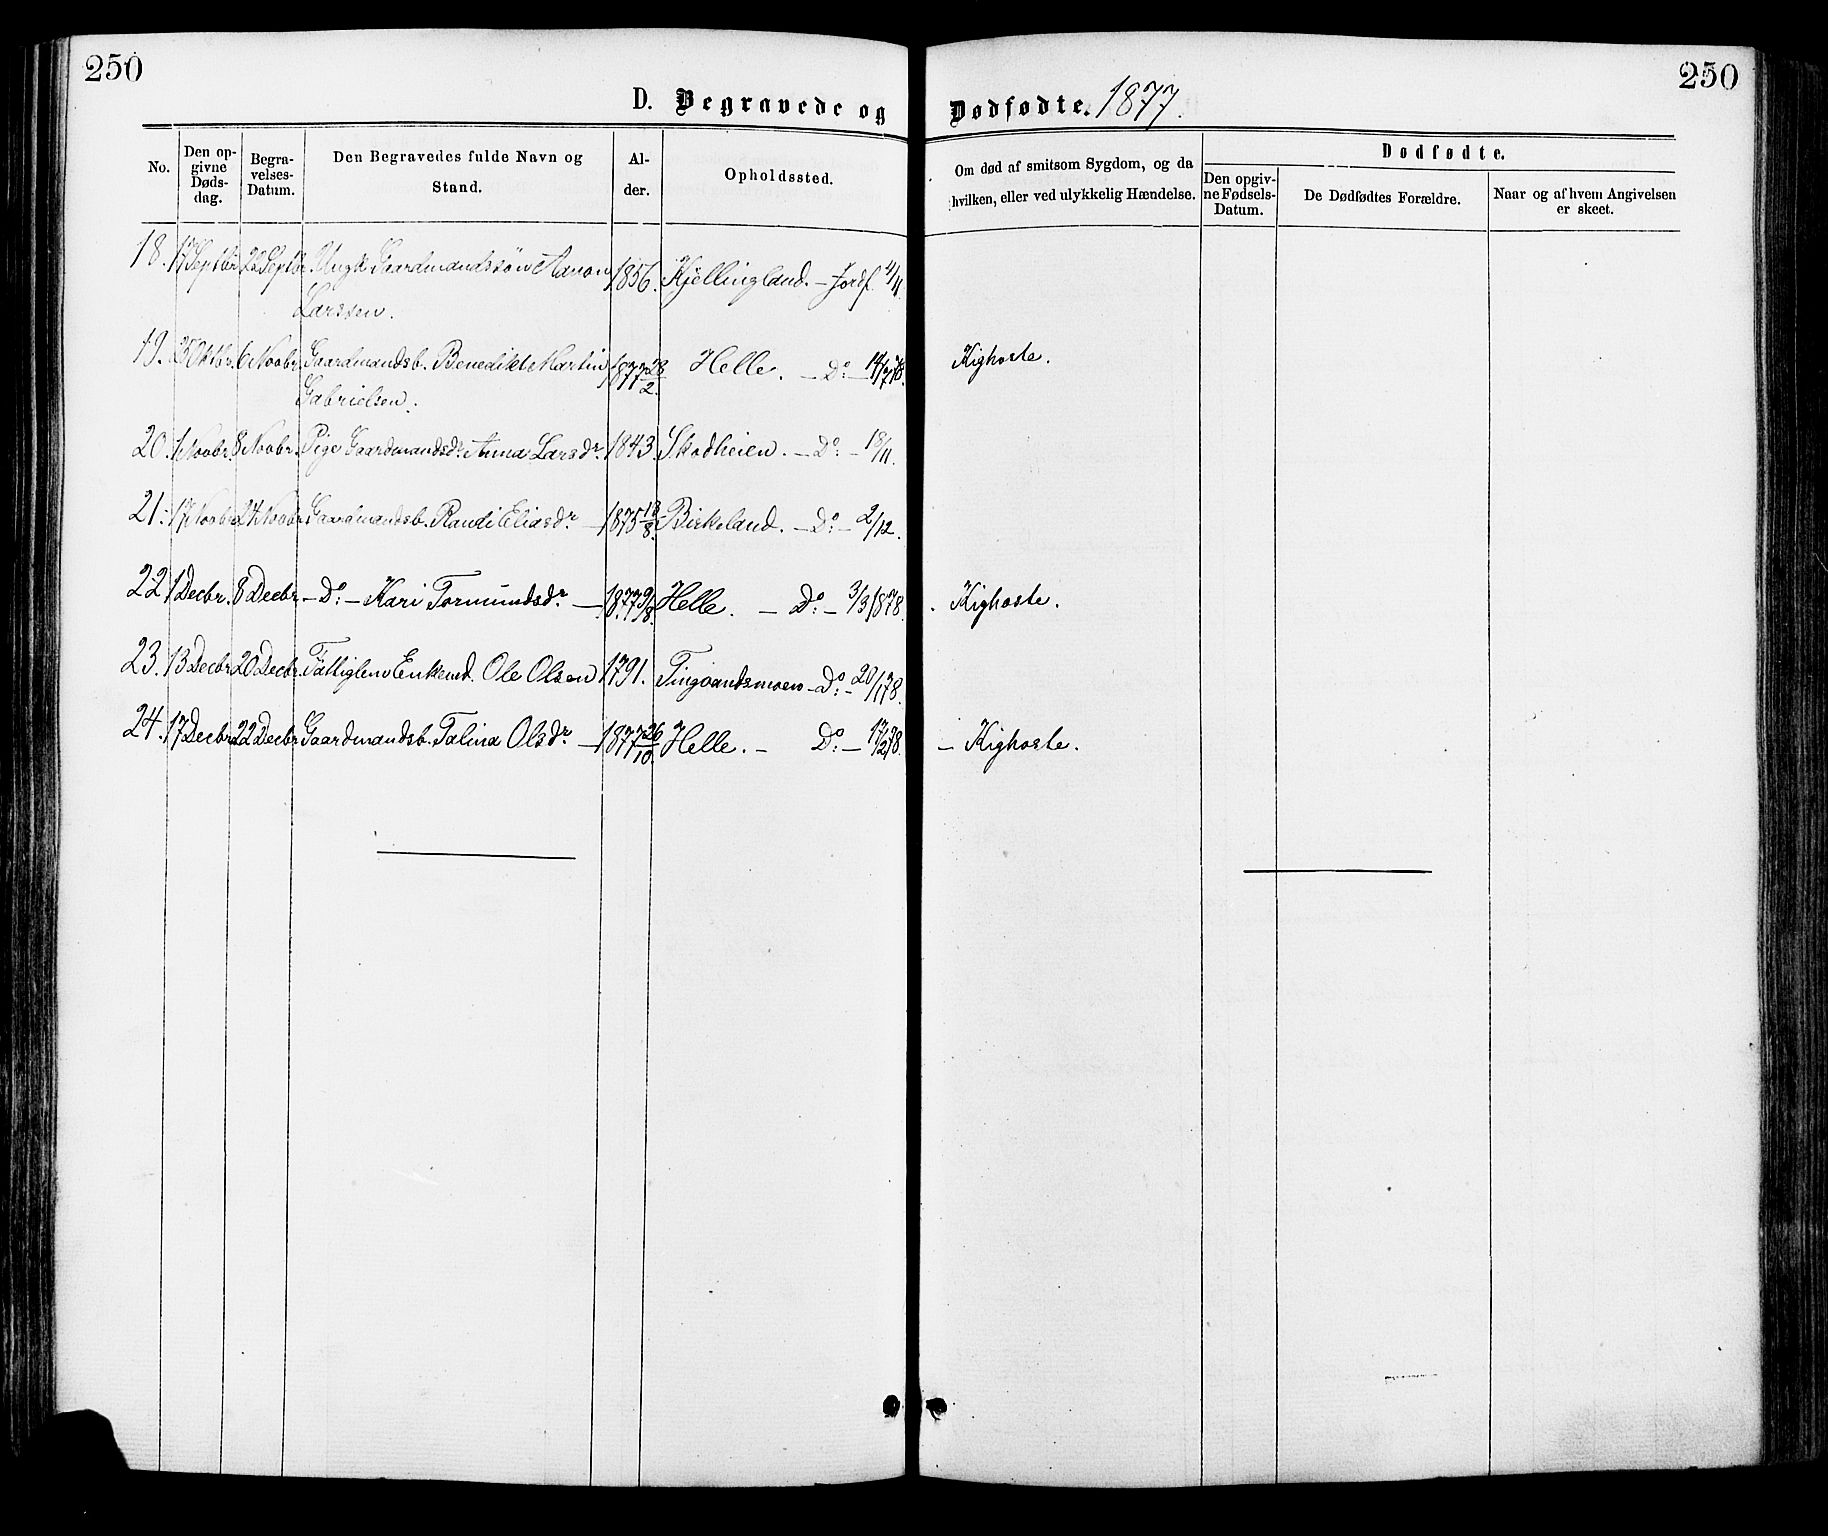 250
250
D. Begravede og Dødfødte. 1877.
No.
Den op-
givne
Døds-
dag.
Begra-
velses-
Datum.
Den Begravedes fulde Navn og
Stand.
Al-
der.
Opholdssted.
Om død af smitsom Sygdom, og da
hvilken, eller ved ulykkelig Hændelse.
Dødfødte.
Den opgiv-
ne Fødsels-
Datum.
De Dødfødtes Forældre.
Naar og af hvem Angivelsen
er skeet.
18. 17 Septbr. 22 Septbr. Ungk. Gaardmandssøn Aanon 1856. Kjellingland. – Jordf. 4/11.
Larssen.
19. 25 Oktbr. 6 Novbr. Gaardmandsb. Benedikt Martin 1877 28/2. Helle. – Do: – 14/7 78. Kighoste.
Gabrielsen.
20. 1 Novbr. 8 Novbr. Pige Gaardmandsdr. Anna Larsdr. 1843. Skodheien. – Do: – 18/11.
21. 17 Novbr. 24 Novbr. Gaardmandsb. Randi Eliasdr. – 1875 13/8. Birkeland. – Do: – 2/12.
22. 1 Decbr. 8 Decbr. – Do: – Kari Tormundsdr. – 1877 9/8. Helle. – Do: – 3/3 1878. Kighoste.
23. 13 Decbr. 20 Decbr. Fattiglem Enkemd. Ole Olsen 1791. Tingvandsmoen – Do: – 20/1 78.
24. 17 Decbr. 22 Decbr. Gaardmandsb. Talina Olsdr. – 1877 26/10. Helle. – Do: – 17/2 78. – Kighoste.